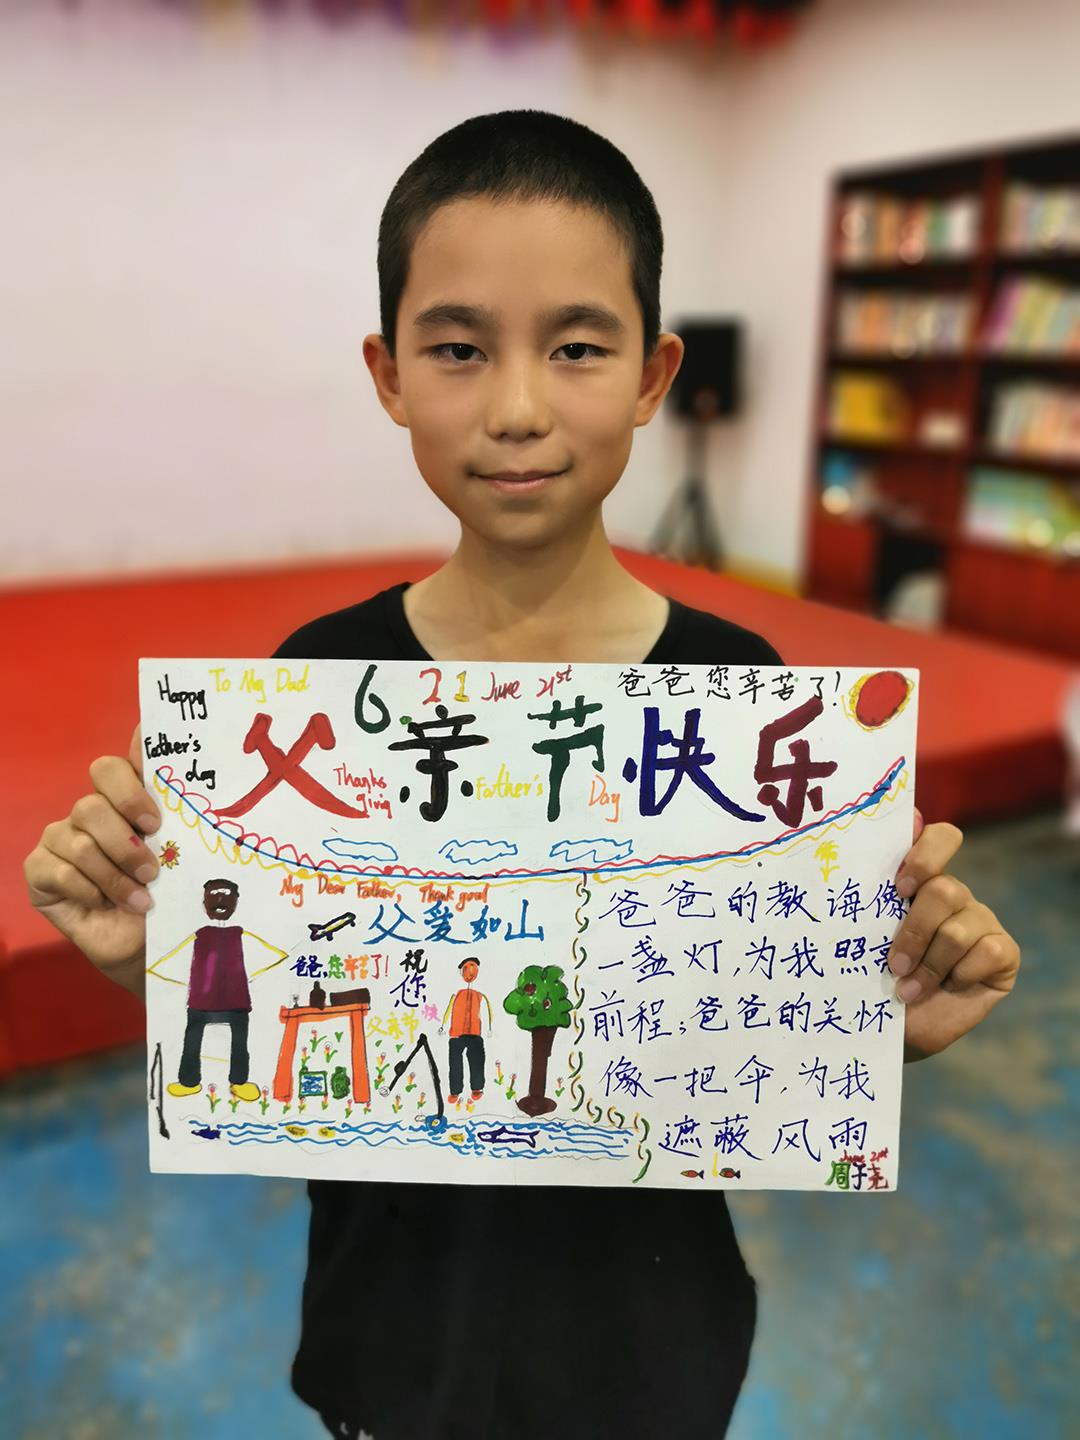 Happy
Father's
day
To My Dad
6 21 June 21st
爸爸您辛苦了!
父亲节快乐
Thanks
giving
Father's
Day
My Dear Father, Thank you!
父爱如山
爸爸,您辛苦了!
祝
您
父亲节
快
爸爸的教诲像
一盏灯,为我照亮
前程;爸爸的关怀
像一把伞,为我
遮蔽风雨
June 21st
周子尧